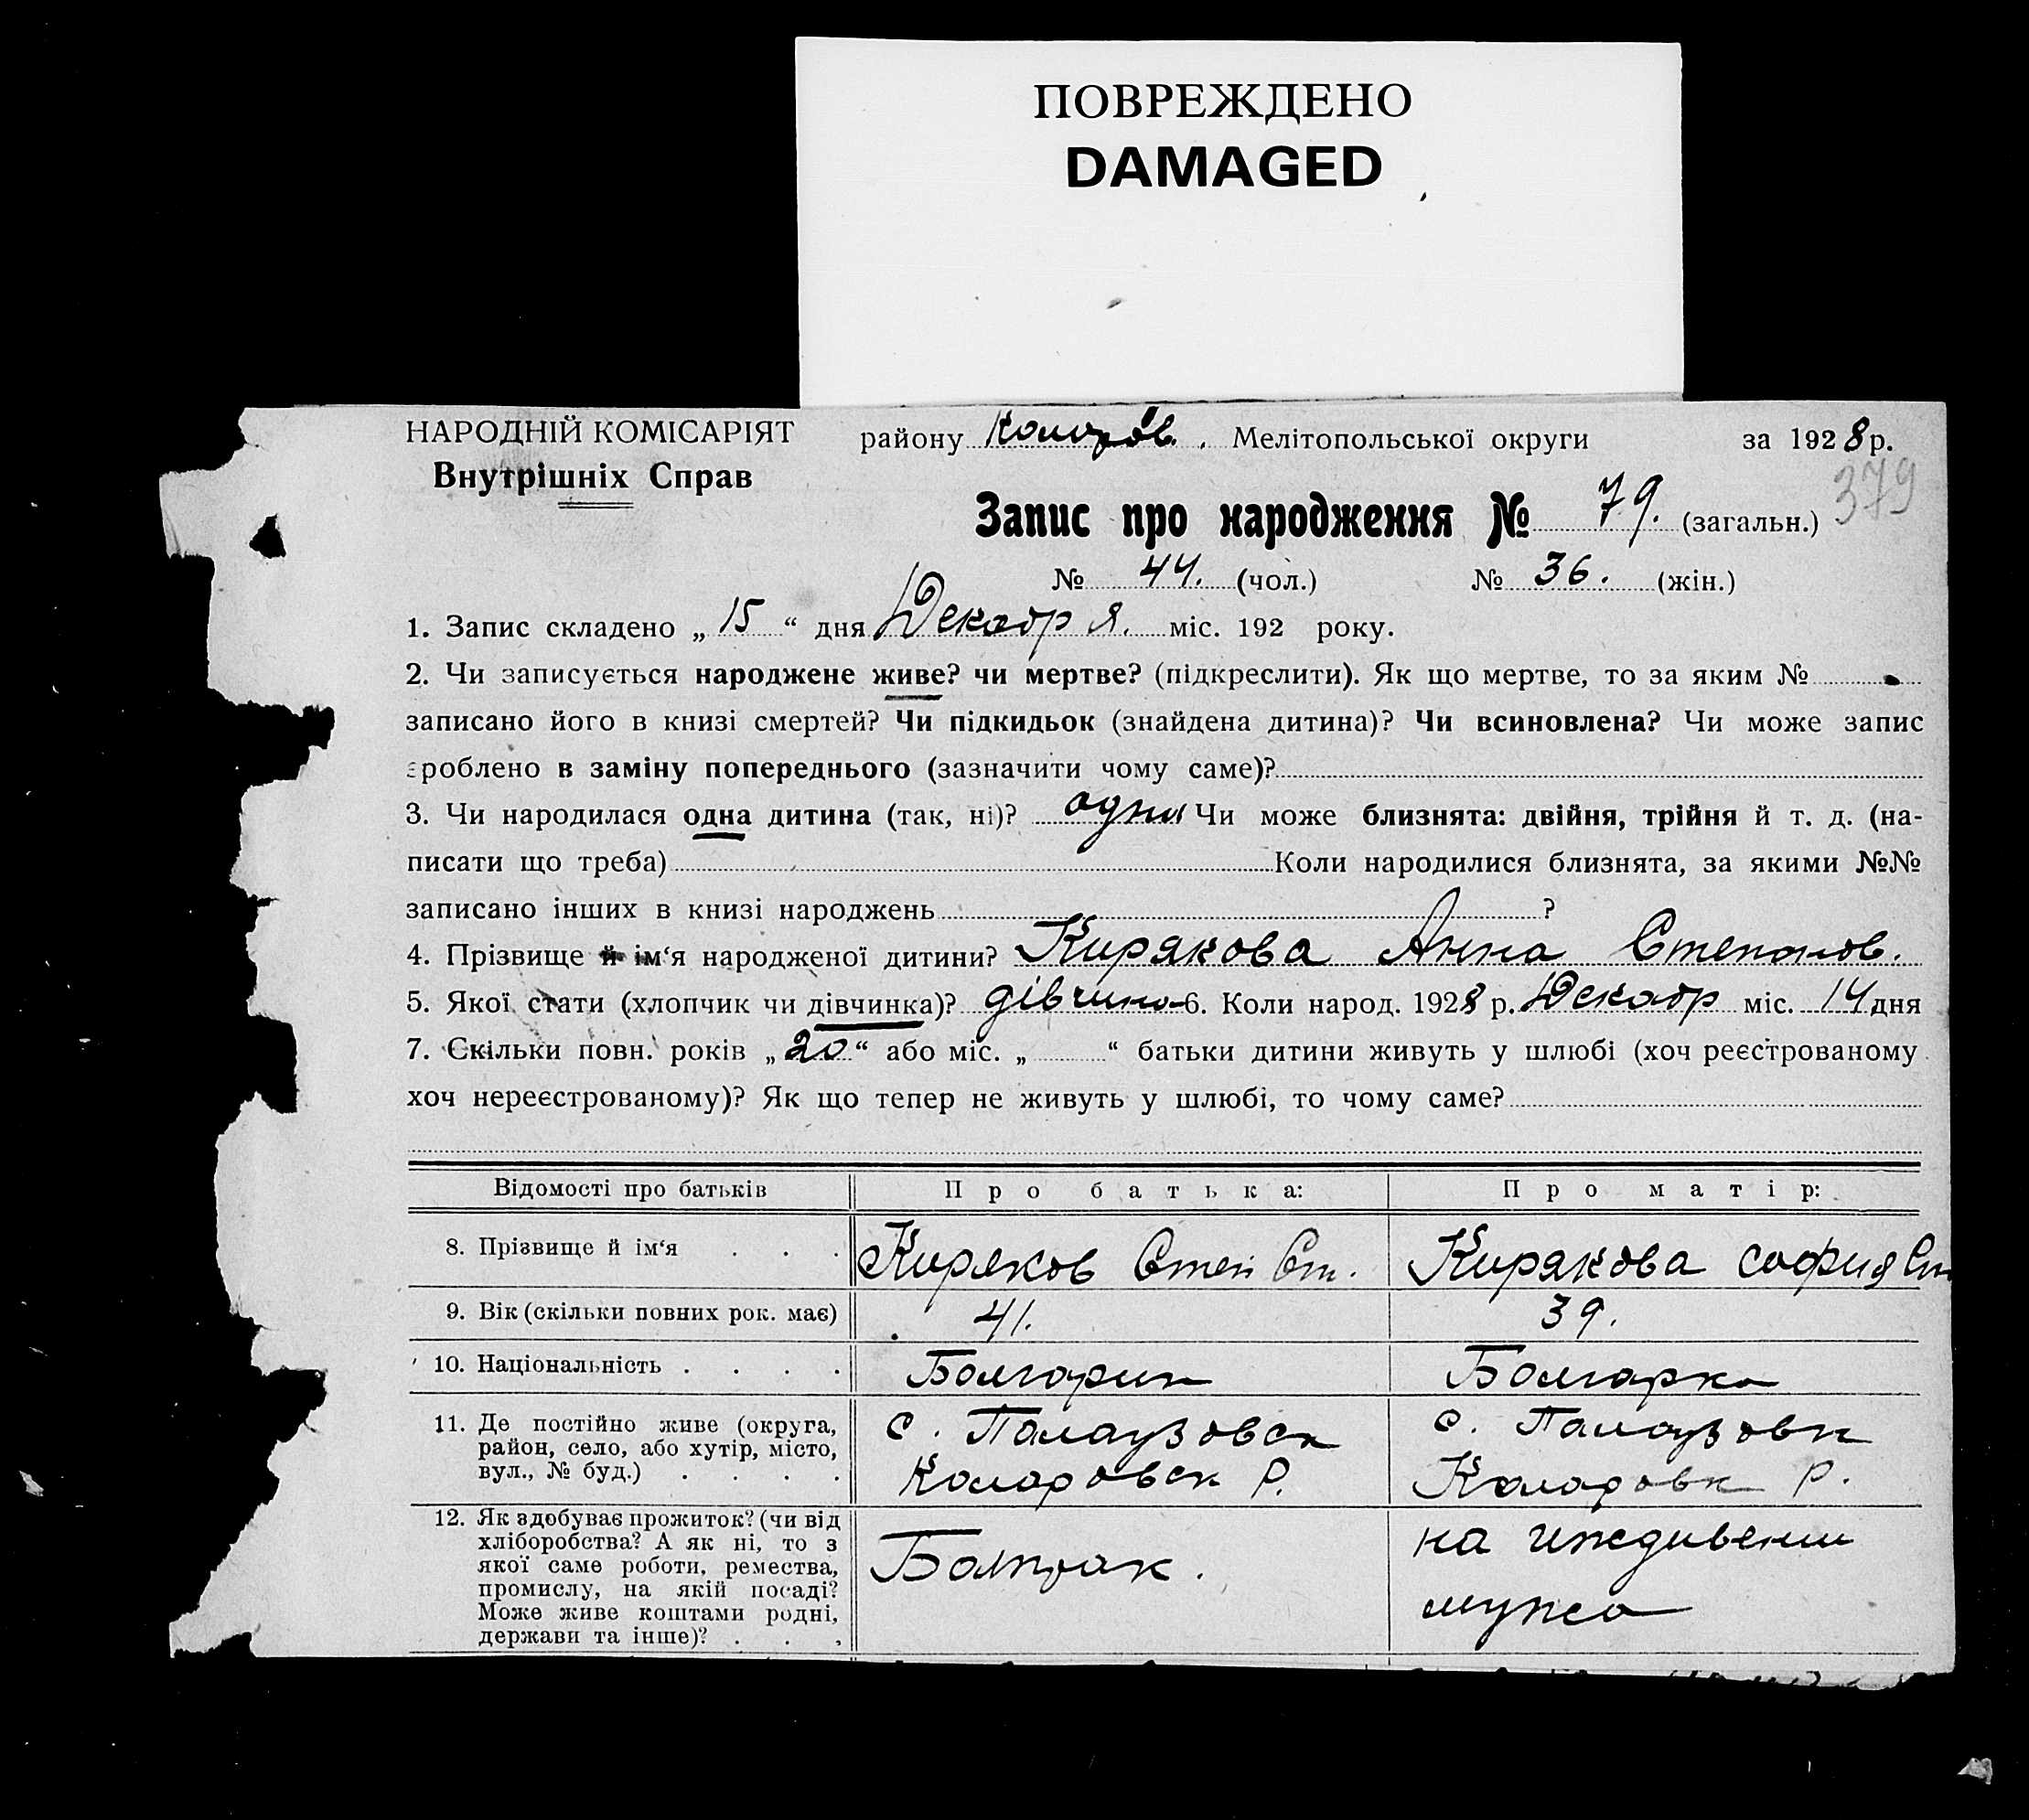 ПОВРЕЖДЕНО
DAMAGED
НАРОДНІЙ КОМІСАРІЯТ
Внутрішніх Справ
району Коларов. Мелітопольської округи за 1928 р.
379
Запис про народження № 79. (загальн.)
№ 44. (чол.) № 36. (жін.)
1. Запис складено „ 15 “ дня Декабря. міс. 192 року.
2. Чи записується народжене живе? чи мертве? (підкреслити). Як що мертве, то за яким №
записано його в книзі смертей? Чи підкидьок (знайдена дитина)? Чи всиновлена? Чи може запис
зроблено в заміну попереднього (зазначити чому саме)?
3. Чи народилася одна дитина (так, ні)? одна Чи може близнята: двійня, трійня й т. д. (на-
писати що треба) Коли народилися близнята, за якими №№
записано інших в книзі народжень ?
4. Прізвище й ім‘я народженої дитини? Кирякова Анна Степанов.
5. Якої стати (хлопчик чи дівчинка)? дівчина 6. Коли народ. 1928 р. Декабр міс. 14 дня
7. Скільки повн. років „ 20 “ або міс. „ “ батьки дитини живуть у шлюбі (хоч реєстрованому
хоч нереєстрованому)? Як що тепер не живуть у шлюбі, то чому саме?
Відомості про батьків Про батька: Про матір:
8. Прізвище й ім‘я . . . Киряков Степ Ст. Кирякова София Ст
9. Вік (скільки повних рок. має) 41. 39.
10. Національність . . . . Болгарин Болгарка
11. Де постійно живе (округа, с. Палаузовск с. Палаузовк
район, село, або хутір, місто,
вул., № буд.) . . . . Коларовск Р. Коларовк Р.
12. Як здобуває прожиток? (чи від
хліборобства? А як ні, то з на иждивении
якої саме роботи, ремества, Батрак.
промислу, на якій посаді?
Може живе коштами родні, мужа
держави та інше)? . . .